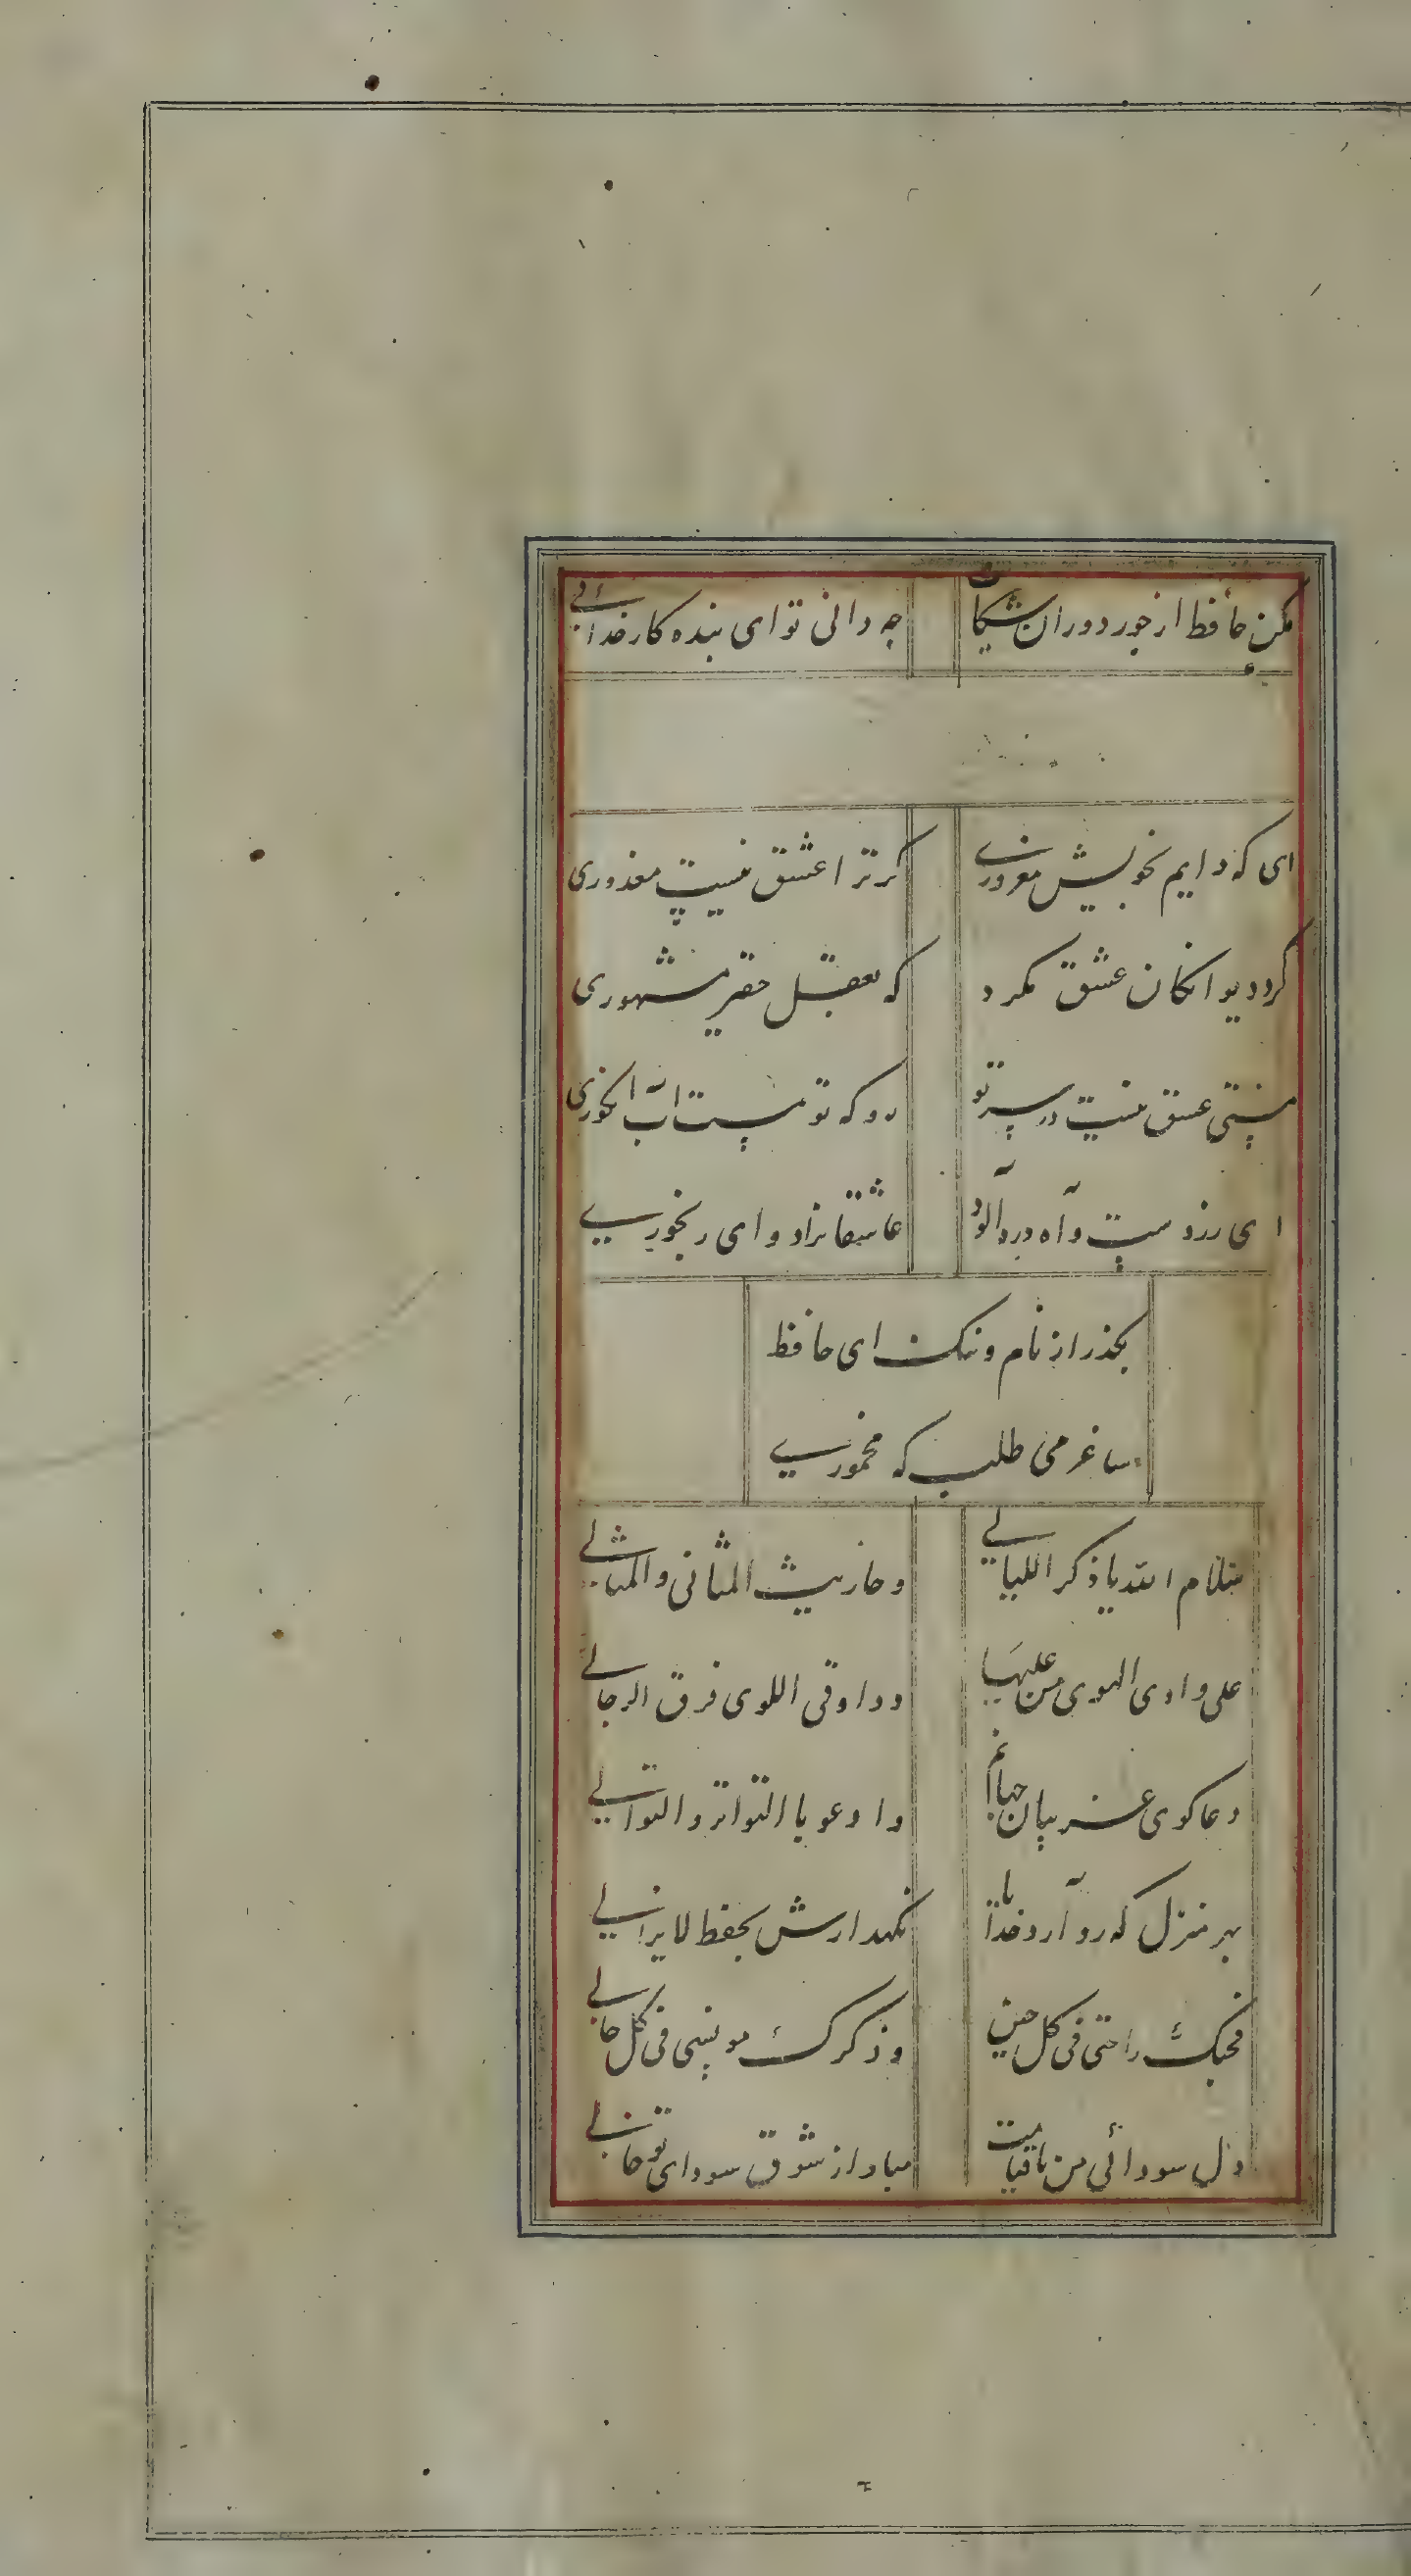 مکن حافظ از جور دوران شکایت چه دانی تو ای بنده کار خدائی
ای که دایم بخویش مغروری کر ترا عشق نیست معذوری
کرد دیوانکان عشق مکرد که بعقل عقیله مشهوری
مستی عشق نیست در سر تو رو که تو مست آب انکوری
روی زردست و آه دردآلود عاشقانرا دوای رنجوری
بکذر از نام و ننک ای حافظ
ساغر می طلب که مخموری
سلام الله یا ذکر اللیالی و جاربت المثانی والمثالی
علی وادی الهوی من علیها و دار وقی اللوی فرق الرجالی
دعاکوی غریبان جهانم وادعو با التواتر والتوالی
بهر منزل که رو آرد خدایا نکهدارش بحفظ لایزالی
فحبک راحتی فی کل حین وذکرک مونسی فی کل حالی
دل سودائی من تا قیامت مباد از شوق سودای تو خالی